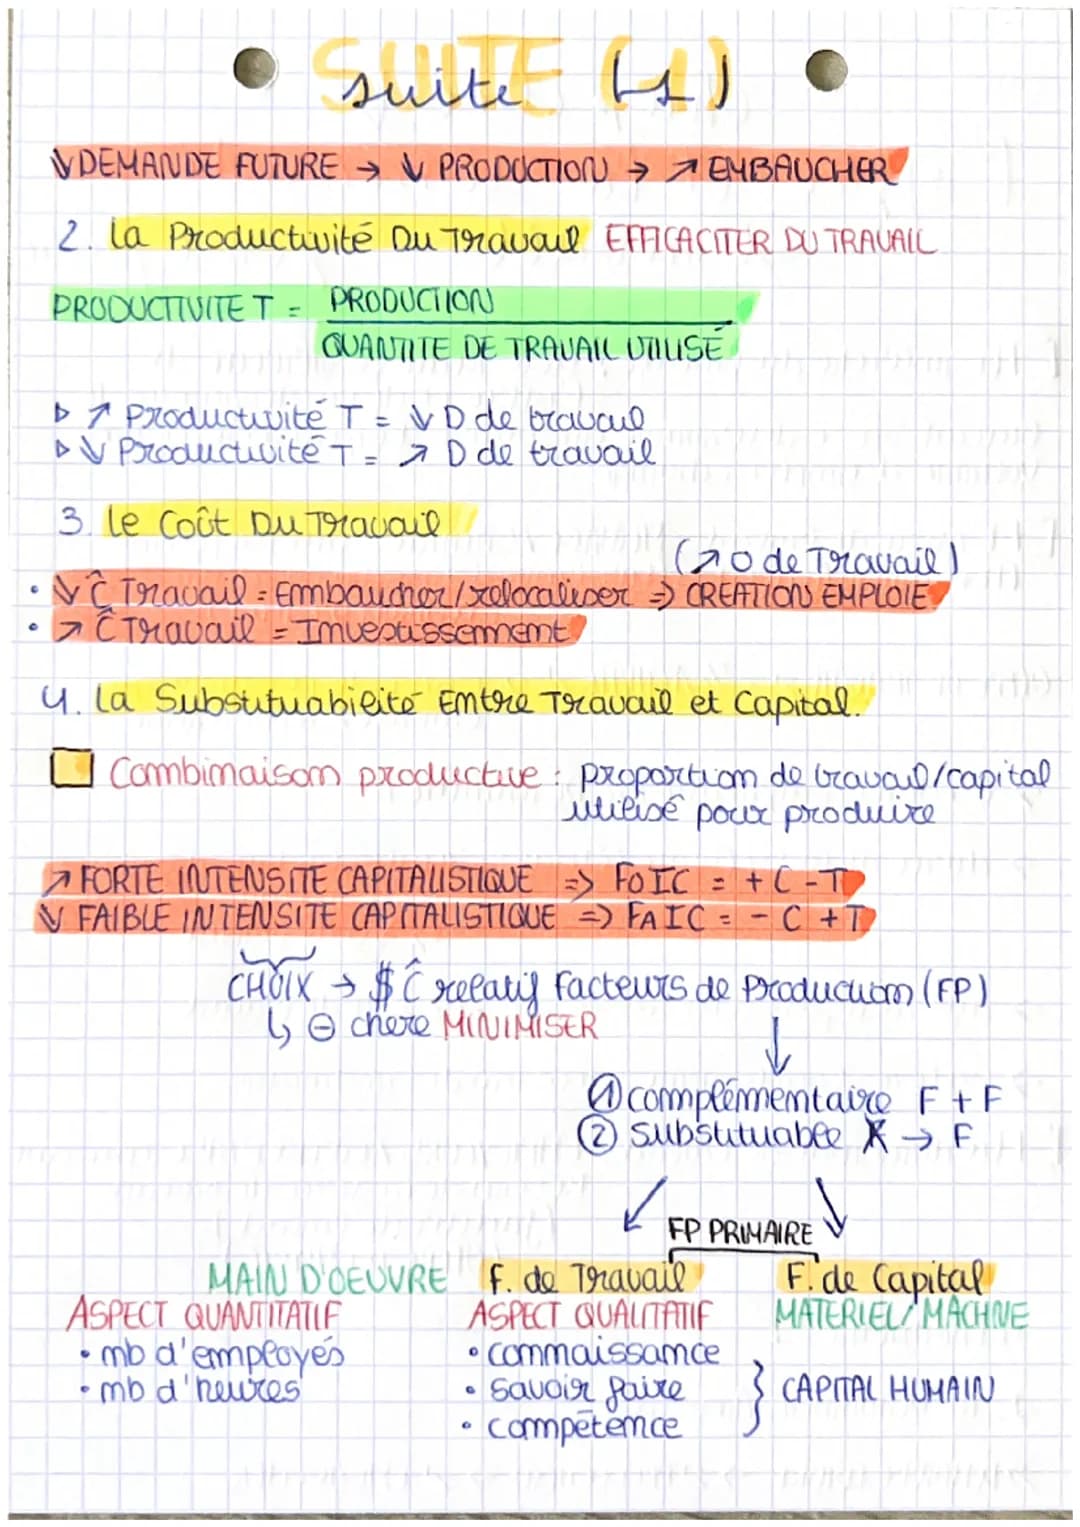 SUITE (1)
suite (1)
↓ DEMANDE FUTURE → ↓ PRODUCTION → ↗ EMBAUCHER
2. la Productivité Du Travail EFFICACITER DU TRAVAIL
PRODUCTIVITE T = PRODUCTION
QUANTITE DE TRAVAIL UTILISÉ
▷ ↗ Productivité T = ↓ D de travail
▷ ↓ Productivité T = ↗ D de travail
3. le Coût Du Travail
(↗ O de Travail)
• ↓ Ĉ Travail = Embaucher/relocaliser ⇒ CREATION EMPLOIE
• ↗ Ĉ Travail = Investissement
4. la Substituabilité Entre Travail et Capital.
Combinaison productive : proportion de travail/capital
utilisé pour produire
↗ FORTE INTENSITE CAPITALISTIQUE ⇒ FOIC = + C - T
↓ FAIBLE INTENSITE CAPITALISTIQUE ⇒ FAIC = - C + T
CHOIX → $ Ĉ relatif Facteurs de Production (FP)
↳ ⊖ chère MINIMISER
① complémentaire F + F
② Substituable F → F
FP PRIMAIRE
MAIN D'OEUVRE F. de Travail F. de Capital
ASPECT QUANTITATIF ASPECT QUALITATIF MATERIEL/MACHINE
• nb d'employés • connaissance
• nb d'heures • Savoir faire } CAPITAL HUMAIN
• compétence